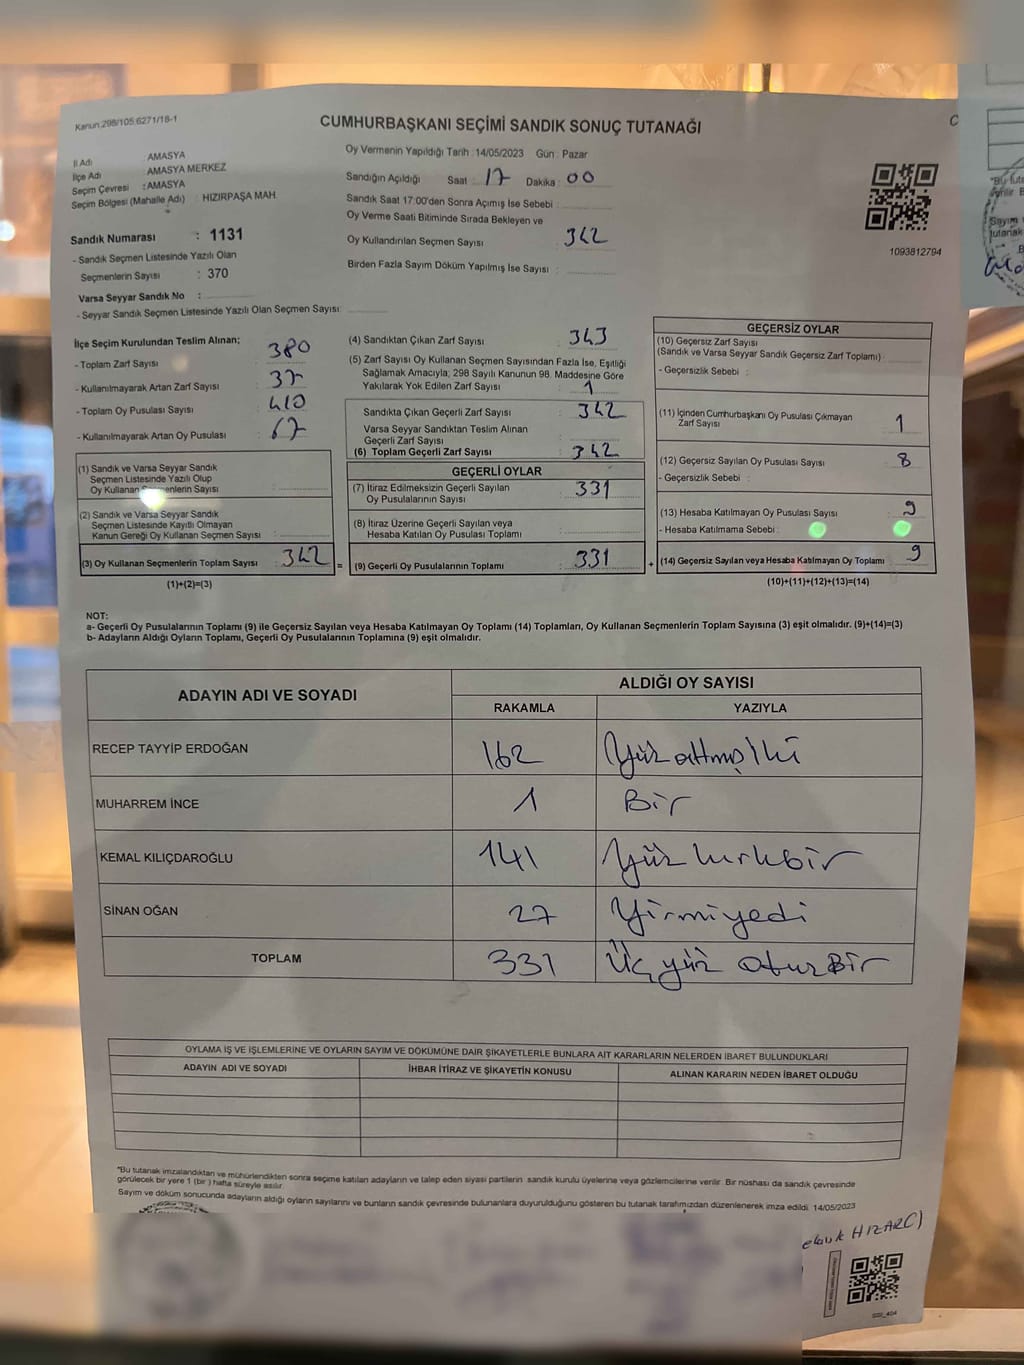 Kanun:298/105;6271/18-1
CUMHURBAŞKANI SEÇİMİ SANDIK SONUÇ TUTANAĞI
İl Adı : AMASYA
İlçe Adı : AMASYA MERKEZ
Seçim Çevresi : AMASYA
Seçim Bölgesi (Mahalle Adı) : HIZIRPAŞA MAH
Sandık Numarası : 1131
- Sandık Seçmen Listesinde Yazılı Olan
Seçmenlerin Sayısı : 370
Varsa Seyyar Sandık No :
- Seyyar Sandık Seçmen Listesinde Yazılı Olan Seçmen Sayısı:
Oy Vermenin Yapıldığı Tarih : 14/05/2023 Gün : Pazar
Sandığın Açıldığı Saat : 17 Dakika : 00
Sandık Saat 17:00'den Sonra Açımış İse Sebebi :
Oy Verme Saati Bitiminde Sırada Bekleyen ve
Oy Kullandırılan Seçmen Sayısı : 342
Birden Fazla Sayım Döküm Yapılmış İse Sayısı :
1093812794
İlçe Seçim Kurulundan Teslim Alınan;
- Toplam Zarf Sayısı : 380
- Kullanılmayarak Artan Zarf Sayısı : 37
- Toplam Oy Pusulası Sayısı : 410
- Kullanılmayarak Artan Oy Pusulası : 67
(1) Sandık ve Varsa Seyyar Sandık
Seçmen Listesinde Yazılı Olup
Oy Kullanan Seçmenlerin Sayısı :
(2) Sandık ve Varsa Seyyar Sandık
Seçmen Listesinde Kayıtlı Olmayan
Kanun Gereği Oy Kullanan Seçmen Sayısı :
(3) Oy Kullanan Seçmenlerin Toplam Sayısı : 342 =
(1)+(2)=(3)
(4) Sandıktan Çıkan Zarf Sayısı : 343
(5) Zarf Sayısı Oy Kullanan Seçmen Sayısından Fazla İse, Eşitliği
Sağlamak Amacıyla; 298 Sayılı Kanunun 98. Maddesine Göre
Yakılarak Yok Edilen Zarf Sayısı : 1
Sandıkta Çıkan Geçerli Zarf Sayısı : 342
Varsa Seyyar Sandıktan Teslim Alınan
Geçerli Zarf Sayısı :
(6) Toplam Geçerli Zarf Sayısı : 342
GEÇERLİ OYLAR
(7) İtiraz Edilmeksizin Geçerli Sayılan
Oy Pusulalarının Sayısı : 331
(8) İtiraz Üzerine Geçerli Sayılan veya
Hesaba Katılan Oy Pusulası Toplamı :
(9) Geçerli Oy Pusulalarının Toplamı : 331 +
GEÇERSİZ OYLAR
(10) Geçersiz Zarf Sayısı
(Sandık ve Varsa Seyyar Sandık Geçersiz Zarf Toplamı) :
- Geçersizlik Sebebi :
(11) İçinden Cumhurbaşkanı Oy Pusulası Çıkmayan
Zarf Sayısı : 1
(12) Geçersiz Sayılan Oy Pusulası Sayısı : 8
- Geçersizlik Sebebi :
(13) Hesaba Katılmayan Oy Pusulası Sayısı : 9
- Hesaba Katılmama Sebebi :
(14) Geçersiz Sayılan veya Hesaba Katılmayan Oy Toplamı : 9
(10)+(11)+(12)+(13)=(14)
NOT:
a- Geçerli Oy Pusulalarının Toplamı (9) ile Geçersiz Sayılan veya Hesaba Katılmayan Oy Toplamı (14) Toplamları, Oy Kullanan Seçmenlerin Toplam Sayısına (3) eşit olmalıdır. (9)+(14)=(3)
b- Adayların Aldığı Oyların Toplamı, Geçerli Oy Pusulalarının Toplamına (9) eşit olmalıdır.
ADAYIN ADI VE SOYADI ALDIĞI OY SAYISI
RAKAMLA YAZIYLA
RECEP TAYYİP ERDOĞAN 162 Yüz altmış İki
MUHARREM İNCE 1 Bir
KEMAL KILIÇDAROĞLU 141 Yüz kırkbir
SİNAN OĞAN 27 Yirmiyedi
TOPLAM 331 Üç yüz otuz Bir
OYLAMA İŞ VE İŞLEMLERİNE VE OYLARIN SAYIM VE DÖKÜMÜNE DAİR ŞİKAYETLERLE BUNLARA AİT KARARLARIN NELERDEN İBARET BULUNDUKLARI
ADAYIN ADI VE SOYADI İHBAR İTİRAZ VE ŞİKAYETİN KONUSU ALINAN KARARIN NEDEN İBARET OLDUĞU
*Bu tutanak imzalandıktan ve mühürlendikten sonra seçime katılan adayların ve talep eden siyasi partilerin sandık kurulu üyelerine veya gözlemcilerine verilir. Bir nüshası da sandık çevresinde
görülecek bir yere 1 (bir) hafta süreyle asılır.
Sayım ve döküm sonucunda adayların aldığı oyların sayılarını ve bunların sandık çevresinde bulunanlara duyurulduğunu gösteren bu tutanak tarafımızdan düzenlenerek imza edildi. 14/05/2023
HIZARCI